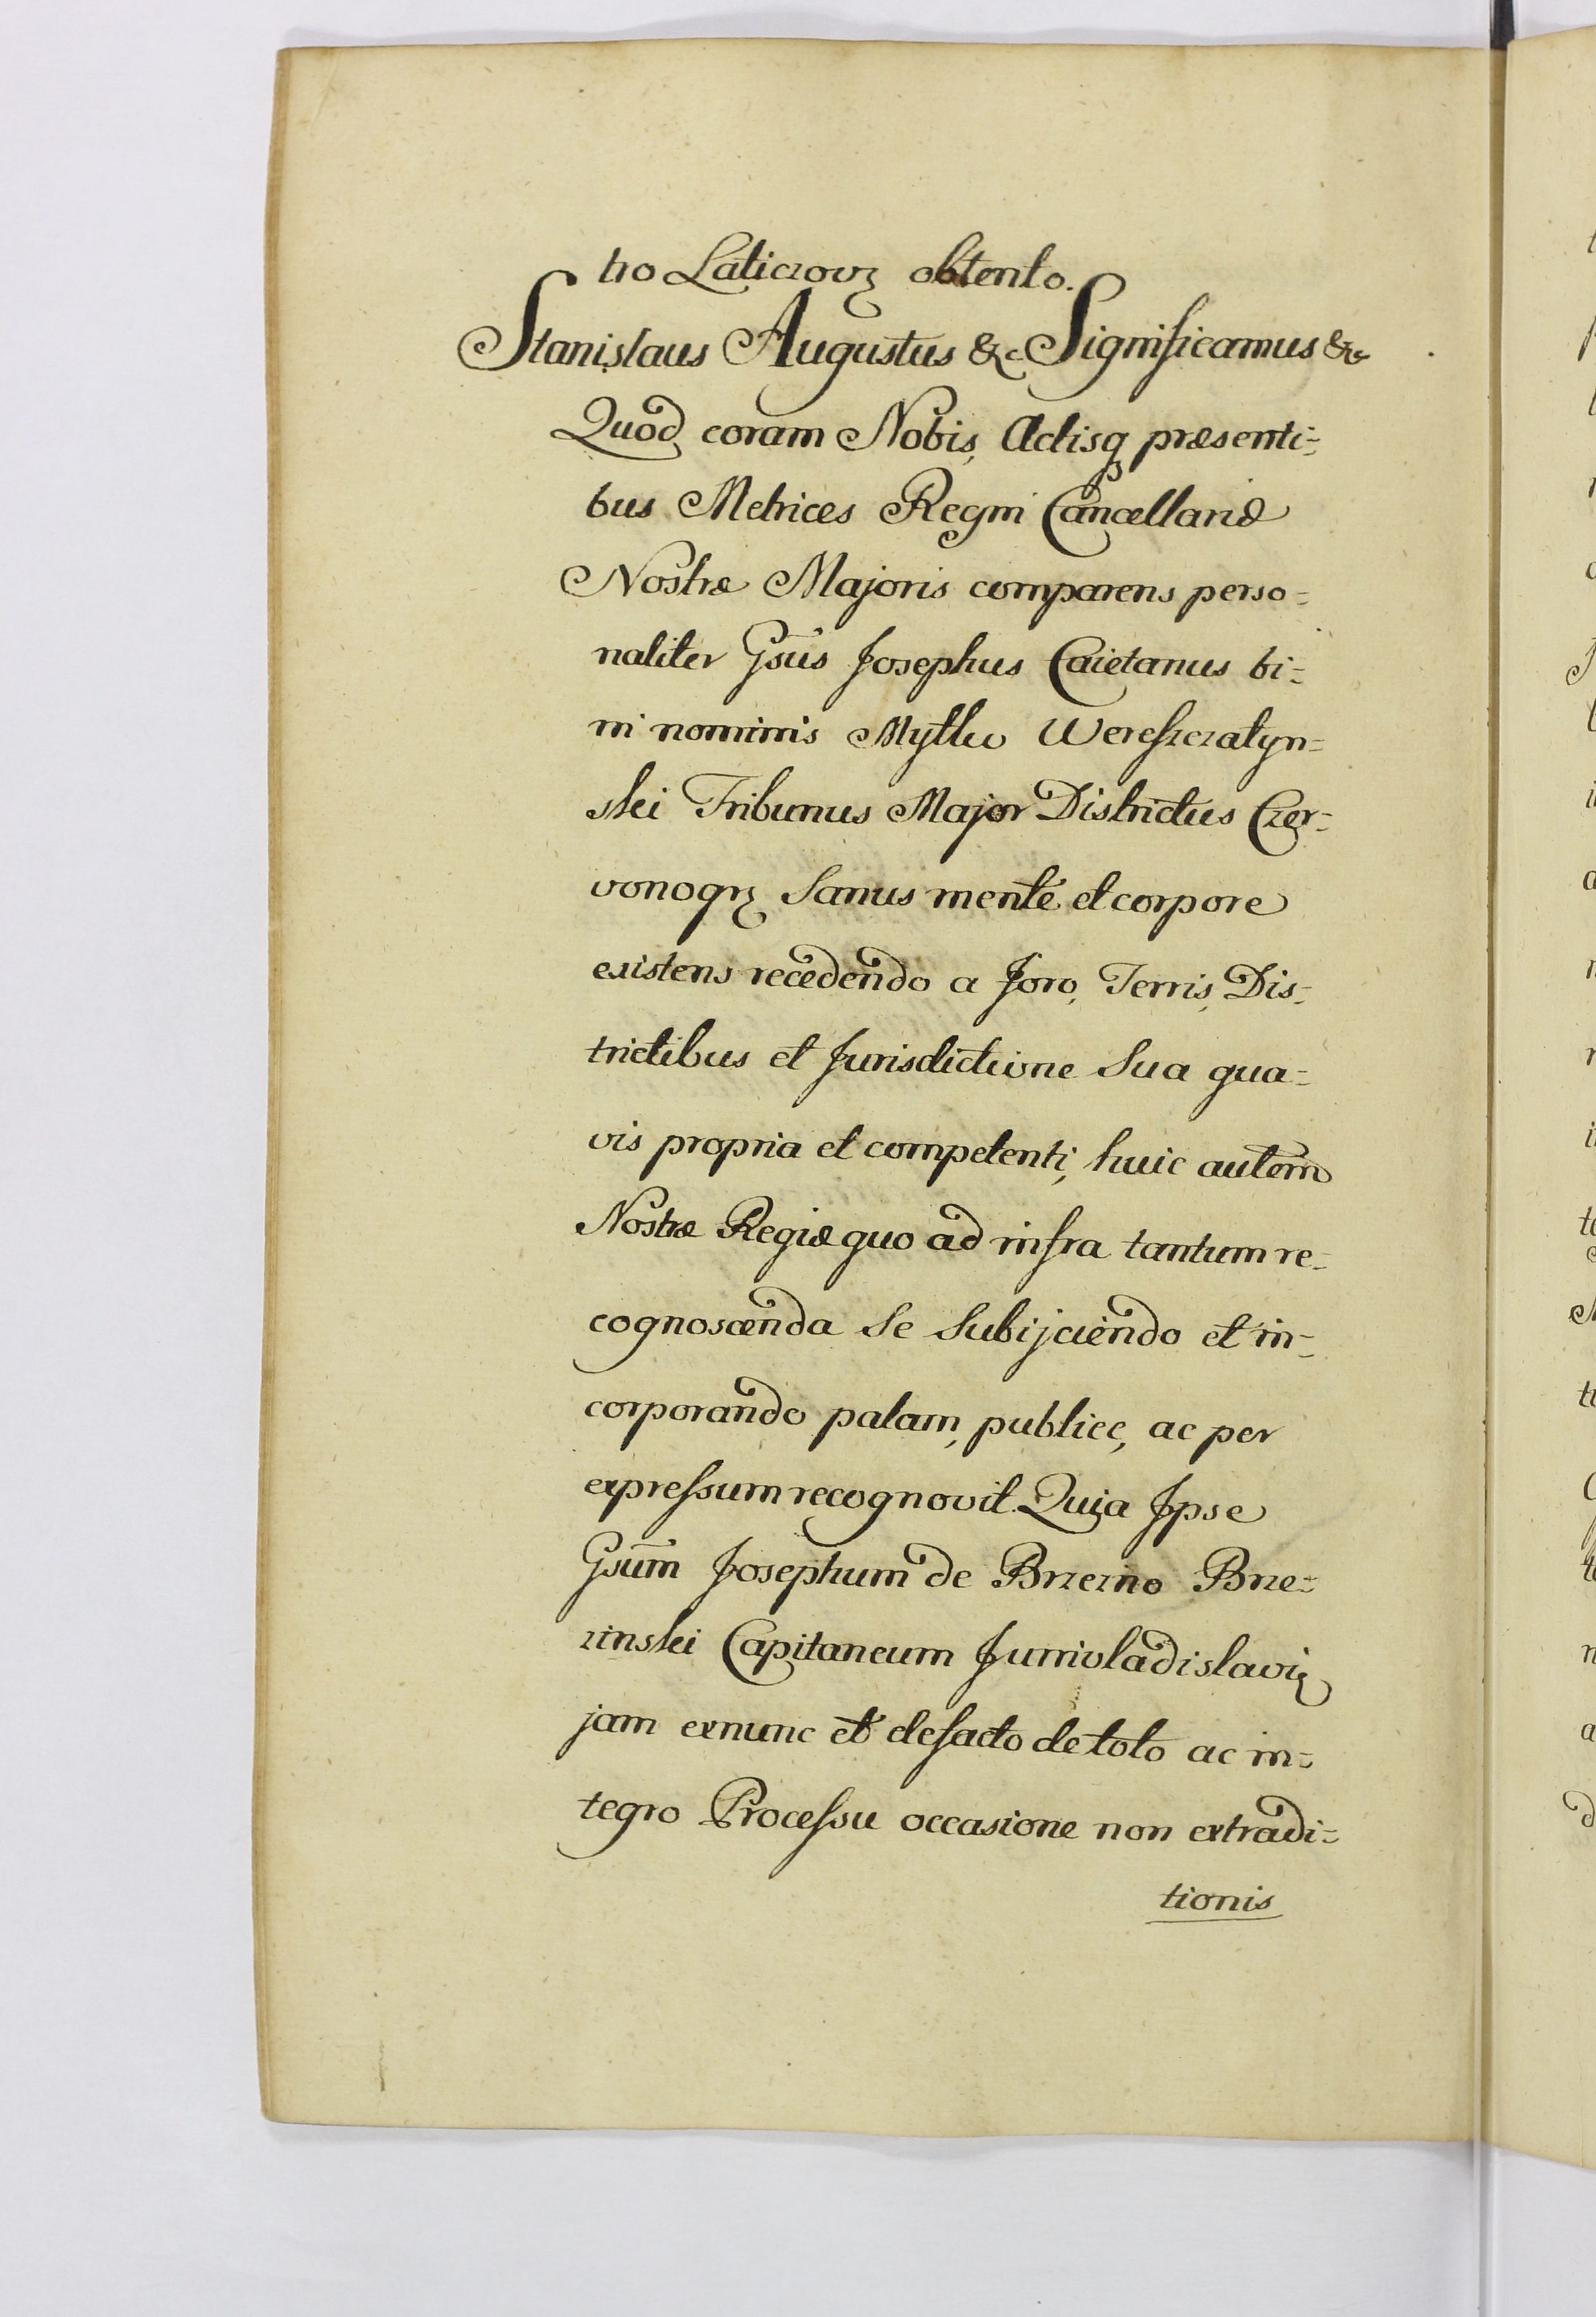 tro Laticzovꝫ obtento.
Stanislaus Augustus &c Significamus &c
Quod coram Nobis, Actisqꝫ præsenti=
bus Metrices Regni Cancellariæ
Nostræ Majoris comparens perso=
naliter Gsus Josephus Caietanus bi=
ni nominis Mytko Wereszczatyn=
ski Tribunus Major Districtus Czer=
vonogrꝫ Sanus mente et corpore
existens recedendo a Foro, Terris, Dis=
trictibus et Jurisdictione Sua qua=
vis propria et competenti, huic autem
Nostræ Regiæ quo ad infra tantum re=
cognoscenda Se Subijciendo et in=
corporando palam, publice, ac per
expressum recognovit. Quia Ipse
Gsum Josephum de Brzezno Brze=
zinski Capitaneum Junivladislaviꝫ
jam exnunc et defacto de toto ac in=
tegro Processu occasione non extradi=
tionis